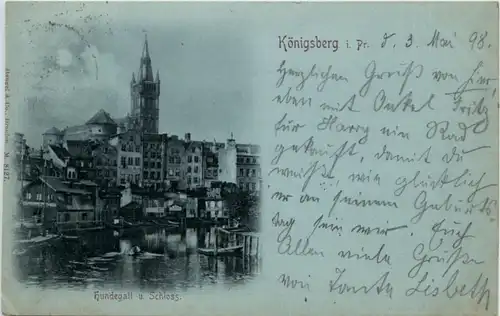 Königsberg i. Pr. d. 3. Mai 98.
Herzlichen Gruß von hier,
eben mit Onkel Fritz
für Harry ein Rad
gekauft, damit du
weißt, wie glücklich
er an seinem Geburts-
tag sein wird. Euch
Allen viele Grüße
von Tante Lisbeth
Hundegatt u. Schloss.